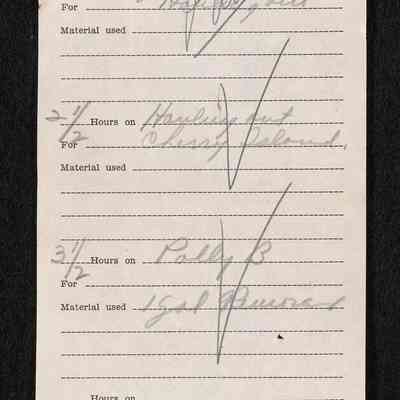 For
Material used
2 1/2 Hours on Hauling out
For Cherry Island,
Material used
3 1/2 Hours on Polly B
For
Material used 1 gal
Hours on